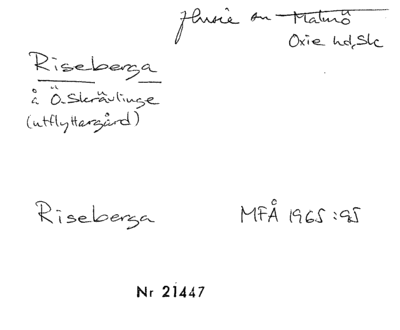 Husie sn Malmö
Oxie hd, Sk
Riseberga
å Ö. Skrävlinge
(utflyttargård)
Riseberga MFÅ 1965:95
Nr 21447